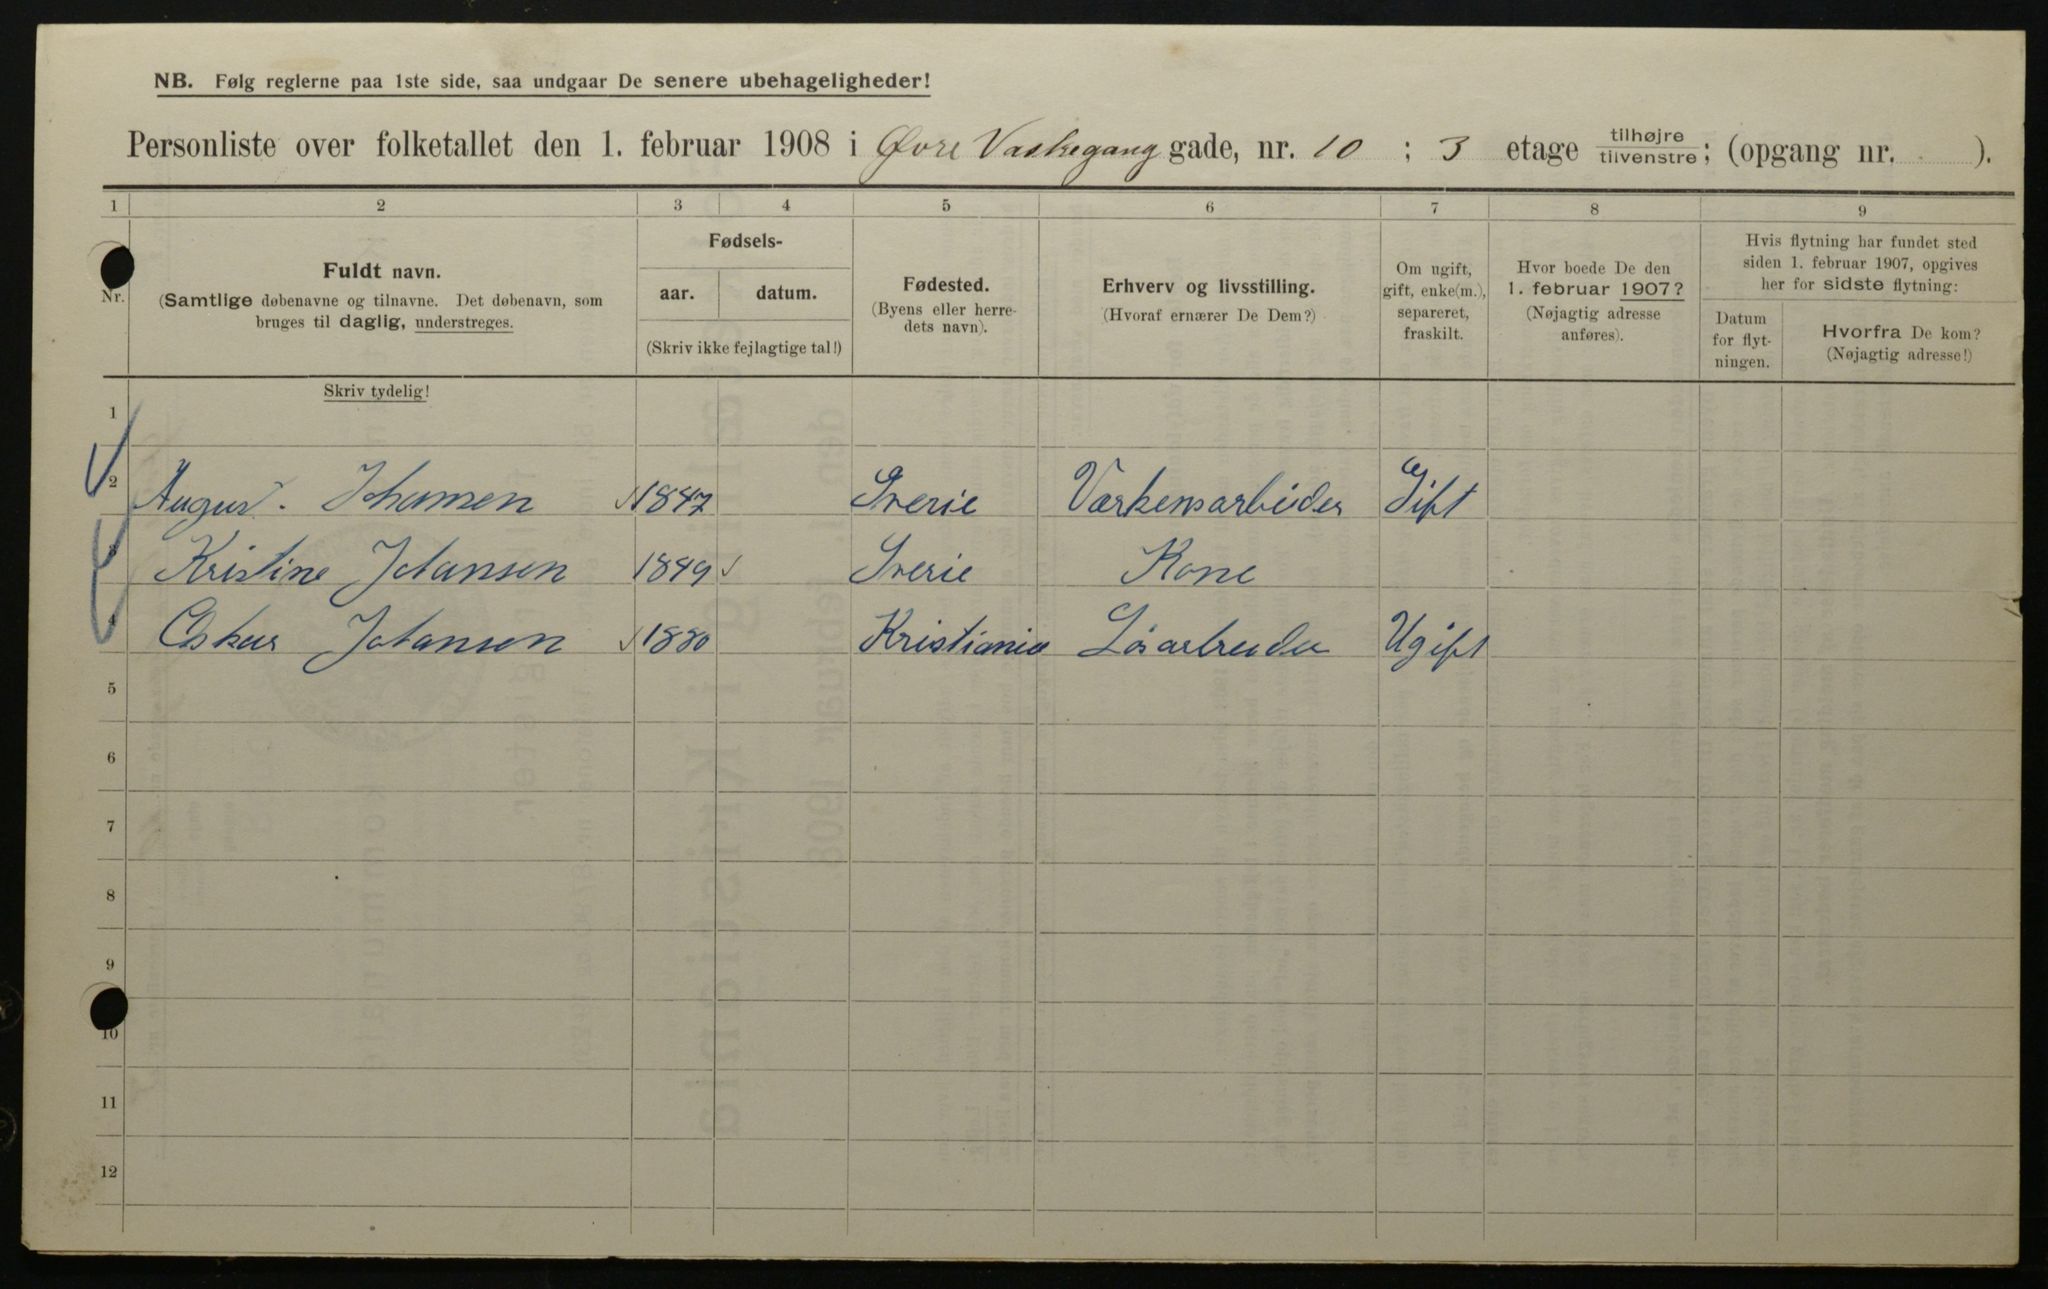 NB. Følg reglerne paa 1ste side, saa undgaar De senere ubehageligheder!
Personliste over folketallet den 1. februar 1908 i Øvre Vaskegang gade, nr. 10 ; 3 etage tilhøjre tilvenstre; (opgang nr. ).
1 2 3 4 5 6 7 8 9
Nr.
Fuldt navn.
(Samtlige døbenavne og tilnavne. Det døbenavn, som
bruges til daglig, understreges.
Fødsels-
aar. datum.
(Skriv ikke fejlagtige tal!)
Fødested.
(Byens eller herre-
dets navn).
Erhverv og livsstilling.
(Hvoraf ernærer De Dem?)
Om ugift,
gift, enke(m.),
separeret,
fraskilt.
Hvor boede De den
1. februar 1907?
(Nøjagtig adresse
anføres).
Hvis flytning har fundet sted
siden 1. februar 1907, opgives
her for sidste flytning:
Datum
for flyt-
ningen.
Hvorfra De kom?
(Nøjagtig adresse!)
Skriv tydelig!
1
2 August. Johansen 1847 Sverie Værkensarbeider Gift
3 Kristine Johansen 1849 Sverie Kone
4 Oskar Johansen 1880 Kristiania Løsarbeider Ugift
5
6
7
8
9
10
11
12